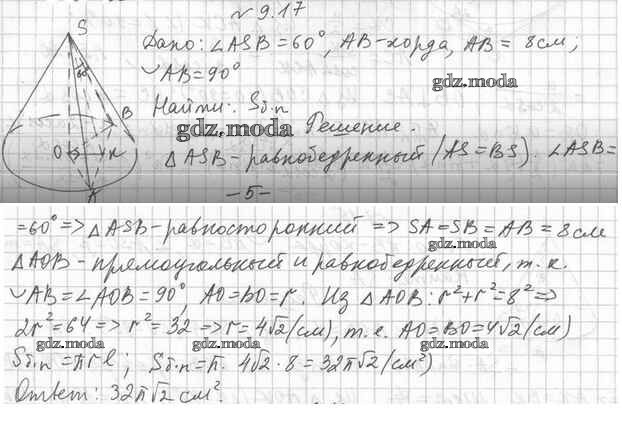 № 9.17
S
Дано: ∠ASB = 60°, AB-хорда, AB = 8см;
60°
◡AB = 90°
gdz.moda
Найти: Sб.п
B
gdz.moda Решение.
O K
△ASB - равнобедренный (AS=BS). ∠ASB=
A
-5-
=60° => △ASB - равносторонний => SA=SB=AB=8см
gdz.moda
△AOB - прямоугольный и равнобедренный, т.к.
◡AB=∠AOB=90°, AO=BO=r. Из △AOB: r²+r²=8² =>
2r²=64 => r²=32 => r=4√2 (см), т.е. AO=BO=4√2 (см)
gdz.moda gdz.moda
Sб.п = πrl; Sб.п = π · 4√2 · 8 = 32π√2 (см²)
Ответ: 32π√2 см².